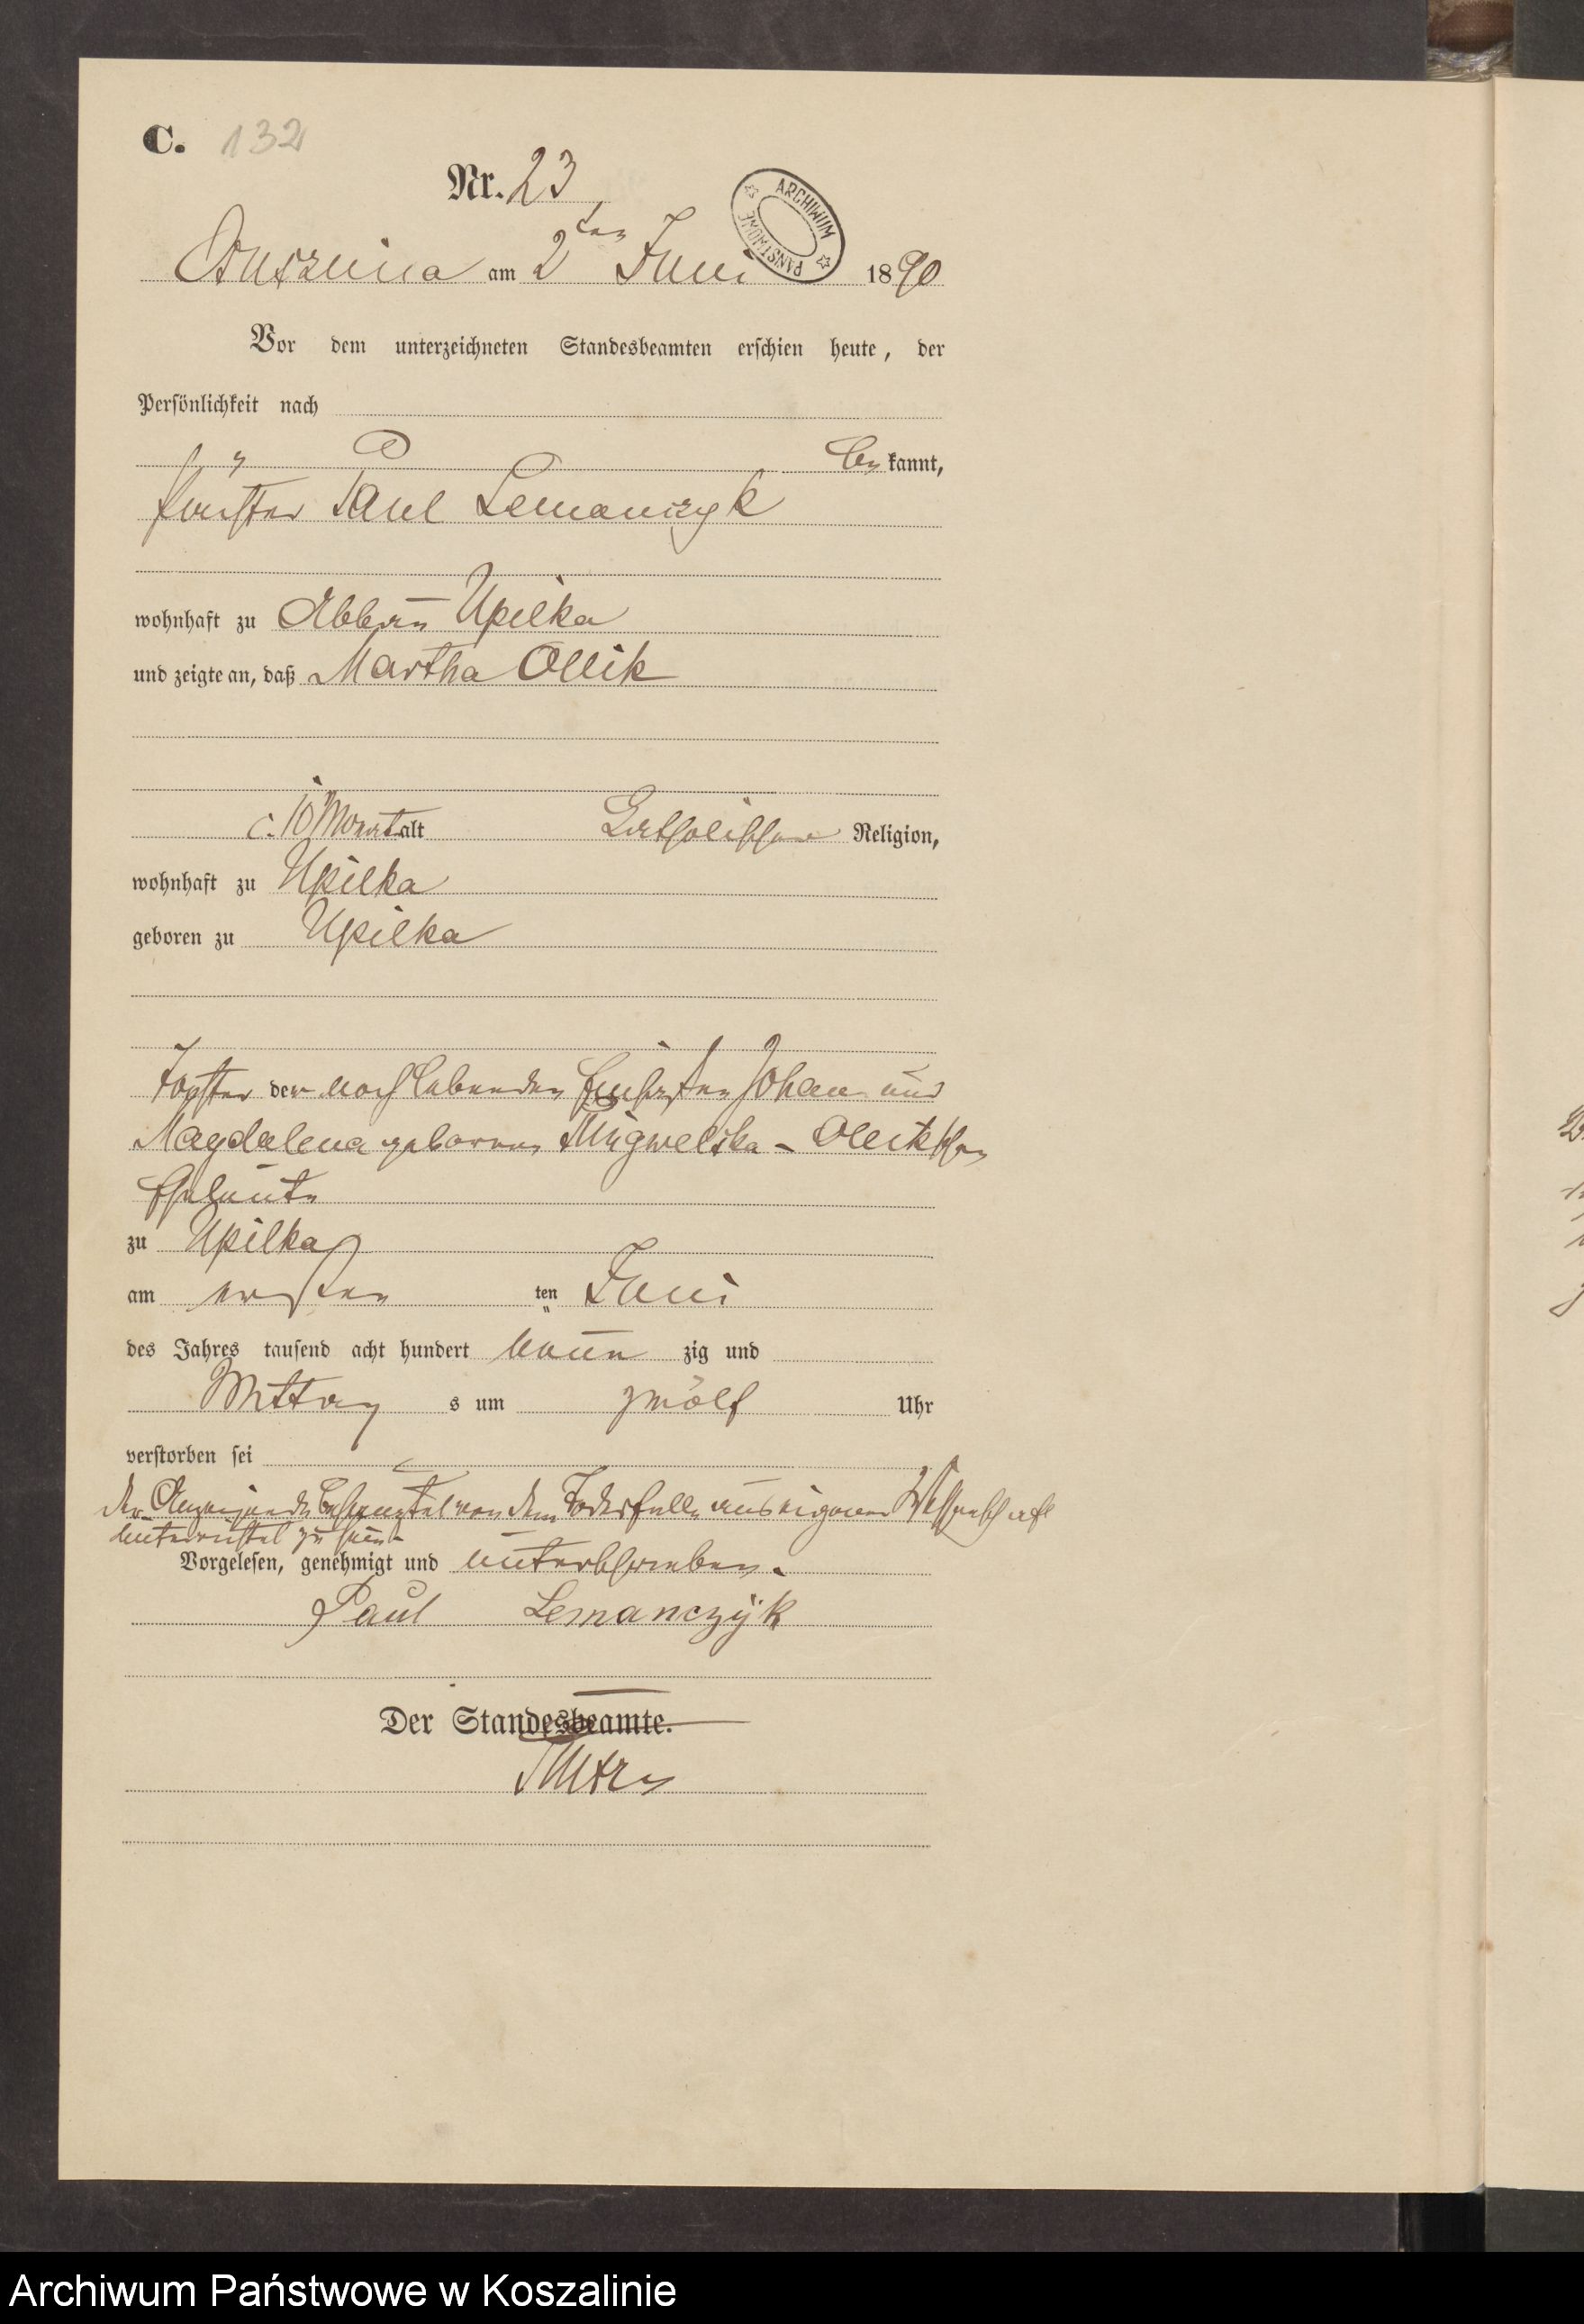 C. 132
Nr. 23
ARCHIWUM PAŃSTWOWE
am 2ten Juni 1890
Vor dem unterzeichneten Standesbeamten erschien heute, der
Persönlichkeit nach
be kannt,
Paul Lemanczyk
wohnhaft zu Abbau Upilka
und zeigte an, daß Martha Ollik
c. 10 Monat alt katholischer Religion,
wohnhaft zu Upilka
geboren zu Upilka
Tochter der noch lebenden Johann und
Magdalena geborene
Eheleute
zu Upilka
am ersten ten Juni
des Jahres tausend acht hundert neun zig und
Mittag s um zwölf Uhr
verstorben sei
der Anzeigende behauptet von dem Todesfalle aus eigener Wissenschaft
unterrichtet zu sein
Vorgelesen, genehmigt und unterschrieben.
Paul Lemanczyk
Der Standesbeamte.
Archiwum Państwowe w Koszalinie